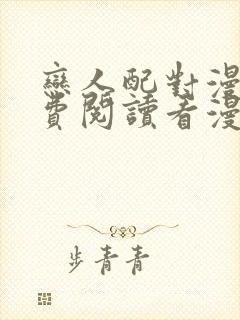 戀人配對漫
費閱讀看漫
步青青